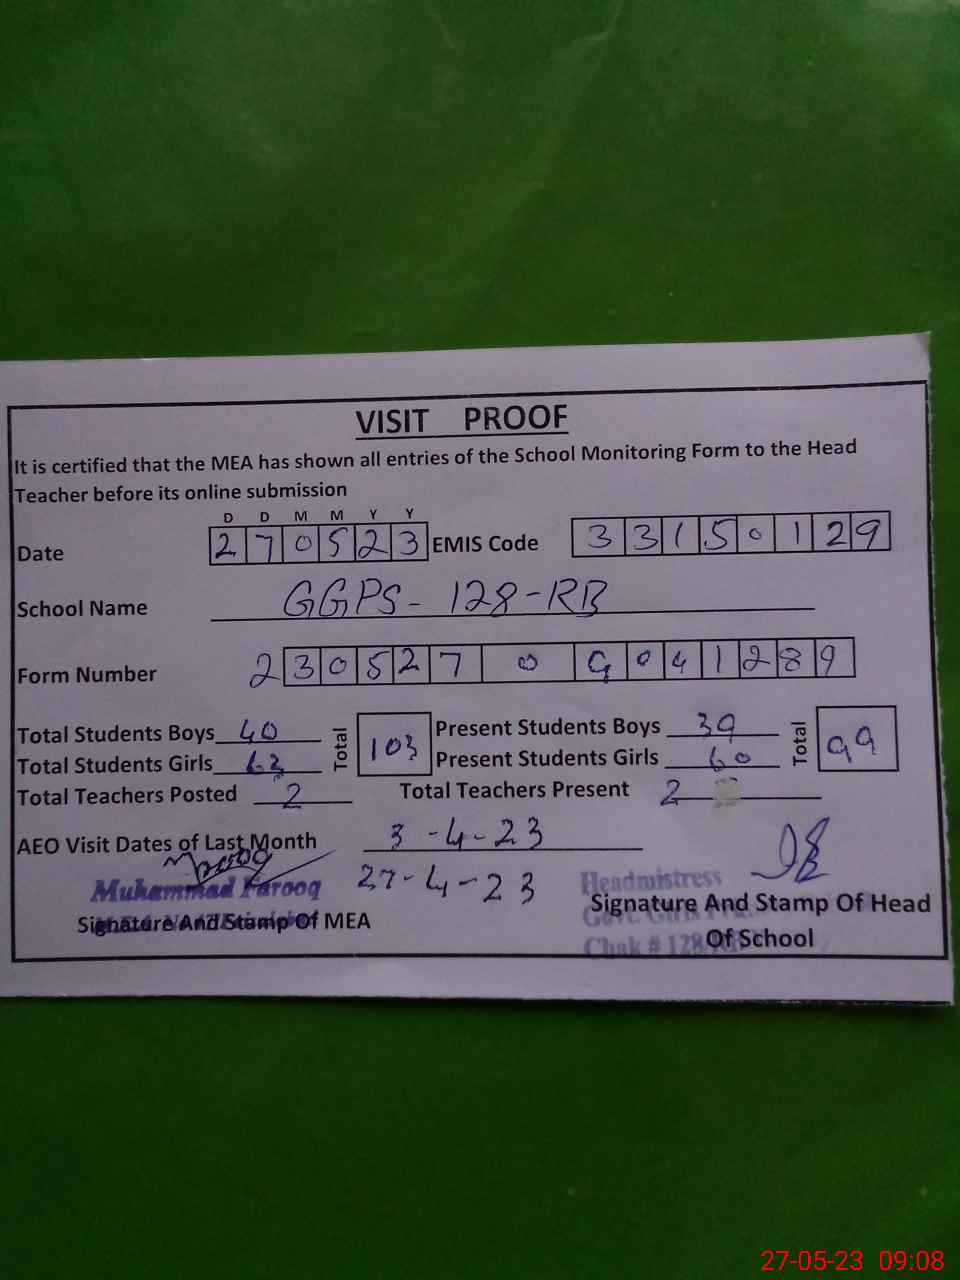 VISIT PROOF
It is certified that the MEA has shown all entries of the School Monitoring Form to the Head
Teacher before its online submission
D D M M Y Y
Date 2 7 0 5 2 3 EMIS Code 3 3 1 5 0 1 2 9
School Name GGPS- 128-RB
Form Number 2 3 0 5 2 7 0 9 0 4 1 2 8 9
Total Students Boys 40 Total 103 Present Students Boys 39 Total 99
Total Students Girls 63 Present Students Girls 60
Total Teachers Posted 2 Total Teachers Present 2
AEO Visit Dates of Last Month 3-4-23
27-4-23
Muhammad Farooq
Headmistress
Signature And Stamp Of MEA
Signature And Stamp Of Head
Govt. Girls
Chak # 128
Of School
27-05-23 09:08